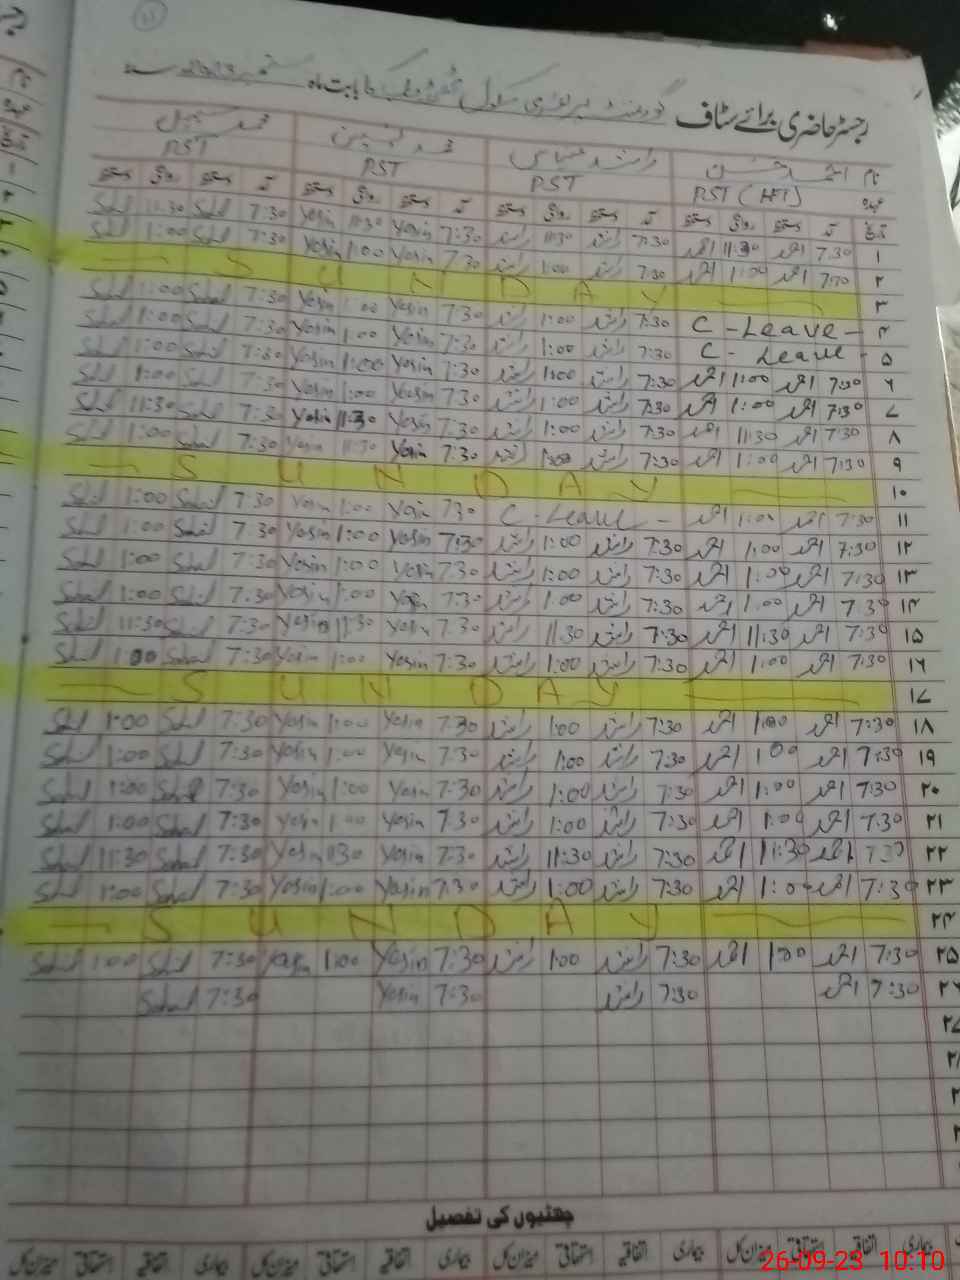 رجسٹر حاضری برائے سٹاف گورنمنٹ پرائمری سکول بابت ماہ ستمبر
نام احمد حسن راشد عباسی محمد یٰسین محمد سہیل
عہدہ PST (HT) PST PST PST
تاریخ آمد دستخط روانگی دستخط آمد دستخط روانگی دستخط آمد دستخط روانگی دستخط آمد دستخط روانگی دستخط
۱ 7:30 احمد 11:30 احمد 7:30 راشد 11:30 راشد 7:30 Yasin 11:30 Yasin 7:30 Sohail 11:30 Sohail
۲ 7:30 احمد 1:00 احمد 7:30 راشد 1:00 راشد 7:30 Yasin 1:00 Yasin 7:30 Sohail 1:00 Sohail
۳ — S U N D A Y —
۴ C - Leave - 7:30 راشد 1:00 راشد 7:30 Yasin 1:00 Yasin 7:30 Sohail 1:00 Sohail
۵ C - Leave - 7:30 راشد 1:00 راشد 7:30 Yasin 1:00 Yasin 7:30 Sohail 1:00 Sohail
۶ 7:30 احمد 1:00 احمد 7:30 راشد 1:00 راشد 7:30 Yasin 1:00 Yasin 7:30 Sohail 1:00 Sohail
۷ 7:30 احمد 1:00 احمد 7:30 راشد 1:00 راشد 7:30 Yasin 1:00 Yasin 7:30 Sohail 1:00 Sohail
۸ 7:30 احمد 11:30 احمد 7:30 راشد 1:00 راشد 7:30 Yasin 11:30 Yasin 7:30 Sohail 11:30 Sohail
۹ 7:30 احمد 1:00 احمد 7:30 راشد 1:00 راشد 7:30 Yasin 11:30 Yasin 7:30 Sohail 1:00 Sohail
۱۰ — S U N D A Y —
۱۱ 7:30 احمد 1:00 احمد C - Leave - 7:30 Yasin 1:00 Yasin 7:30 Sohail 1:00 Sohail
۱۲ 7:30 احمد 1:00 احمد 7:30 راشد 1:00 راشد 7:30 Yasin 1:00 Yasin 7:30 Sohail 1:00 Sohail
۱۳ 7:30 احمد 1:00 احمد 7:30 راشد 1:00 راشد 7:30 Yasin 1:00 Yasin 7:30 Sohail 1:00 Sohail
۱۴ 7:30 احمد 1:00 احمد 7:30 راشد 1:00 راشد 7:30 Yasin 1:00 Yasin 7:30 Sohail 1:00 Sohail
۱۵ 7:30 احمد 11:30 احمد 7:30 راشد 11:30 راشد 7:30 Yasin 11:30 Yasin 7:30 Sohail 11:30 Sohail
۱۶ 7:30 احمد 1:00 احمد 7:30 راشد 1:00 راشد 7:30 Yasin 1:00 Yasin 7:30 Sohail 1:00 Sohail
۱۷ — S U N D A Y —
۱۸ 7:30 احمد 1:00 احمد 7:30 راشد 1:00 راشد 7:30 Yasin 1:00 Yasin 7:30 Sohail 1:00 Sohail
۱۹ 7:30 احمد 1:00 احمد 7:30 راشد 1:00 راشد 7:30 Yasin 1:00 Yasin 7:30 Sohail 1:00 Sohail
۲۰ 7:30 احمد 1:00 احمد 7:30 راشد 1:00 راشد 7:30 Yasin 1:00 Yasin 7:30 Sohail 1:00 Sohail
۲۱ 7:30 احمد 1:00 احمد 7:30 راشد 1:00 راشد 7:30 Yasin 1:00 Yasin 7:30 Sohail 1:00 Sohail
۲۲ 7:30 احمد 11:30 احمد 7:30 راشد 11:30 راشد 7:30 Yasin 11:30 Yasin 7:30 Sohail 11:30 Sohail
۲۳ 7:30 احمد 1:00 احمد 7:30 راشد 1:00 راشد 7:30 Yasin 1:00 Yasin 7:30 Sohail 1:00 Sohail
۲۴ — S U N D A Y —
۲۵ 7:30 احمد 1:00 احمد 7:30 راشد 1:00 راشد 7:30 Yasin 1:00 Yasin 7:30 Sohail 1:00 Sohail
۲۶ 7:30 احمد 7:30 راشد 7:30 Yasin 7:30 Sohail
۲۷
۲۸
چھٹیوں کی تفصیل
بیماری اتفاقیہ استحقاقی میزان کل بیماری اتفاقیہ استحقاقی میزان کل بیماری اتفاقیہ استحقاقی میزان کل
26-09-23 10:10